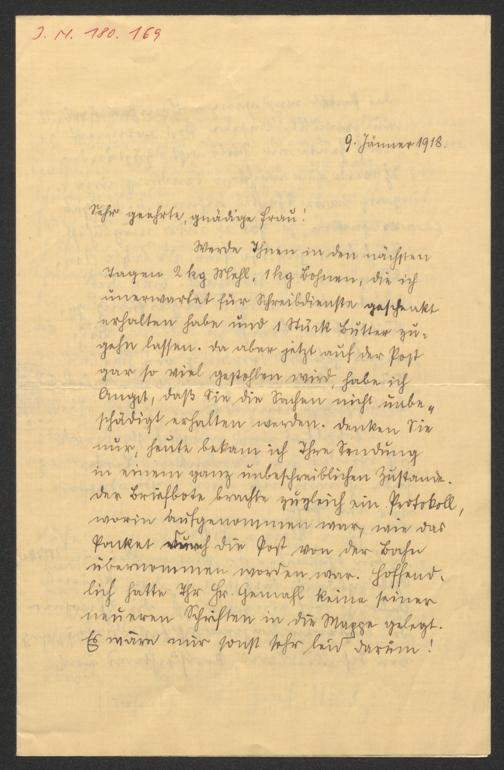 J. N. 180.169
9. Jänner 1918.
Sehr geehrte, gnädige Frau!
Werde Ihnen in den nächsten
Tagen 2 kg Mehl, 1 kg Bohnen, die ich
unerwartet für Schreibdienste geschenkt
erhalten habe und 1 Stück Butter zu-
gehn lassen. Da aber jetzt auf der Post
gar so viel gestohlen wird, habe ich
Angst, daß Sie die Sachen nicht unbe-
schädigt erhalten werden. Denken Sie
nur, heute bekam ich Ihre Sendung
in einem ganz unbeschreiblichen Zustande.
Der Briefbote brachte zugleich ein Protokoll,
worin aufgenommen war, wie das
Packet durch die Post von der Bahn
übernommen worden war. Hoffend-
lich hatte Ihr Hr. Gemahl keine seiner
neueren Schriften in die Mappe gelegt.
Es wäre mir sonst sehr leid darum!